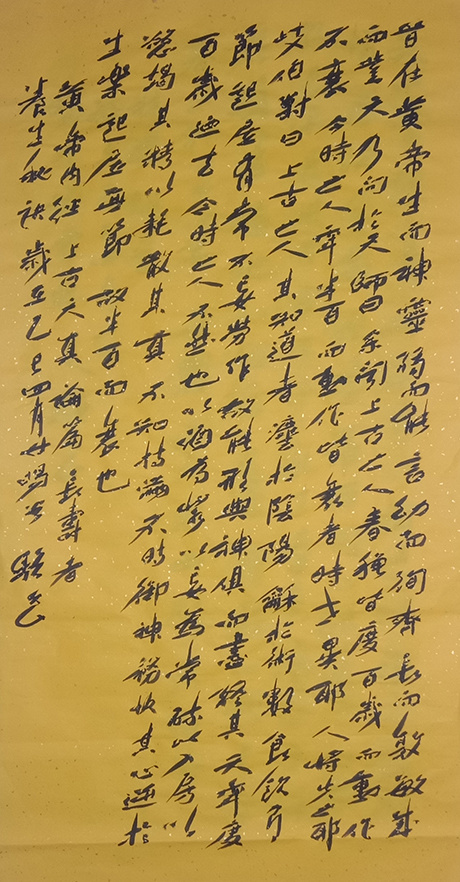 昔在黃帝生而神靈弱而能言幼而徇齊長而敦敏成
而登天乃問於天師曰余聞上古之人春穐皆度百歲而動作
不衰今時之人年半百而動作皆衰者時世異耶人將失之耶
歧伯對曰上古之人其知道者灋於陰陽龢於術數食飲有
節起居有常不妄勞作故能形與神俱而盡終其天年度
百歲廼去今時之人不然也以酒為漿以妄為常醉以入房以
慾竭其精以耗散其真不知持滿不時御神務快其心逆於
生樂起居無節故半百而衰也
黃帝內經上古天真論篇長壽者
養生秘訣歲在己巳四月廿